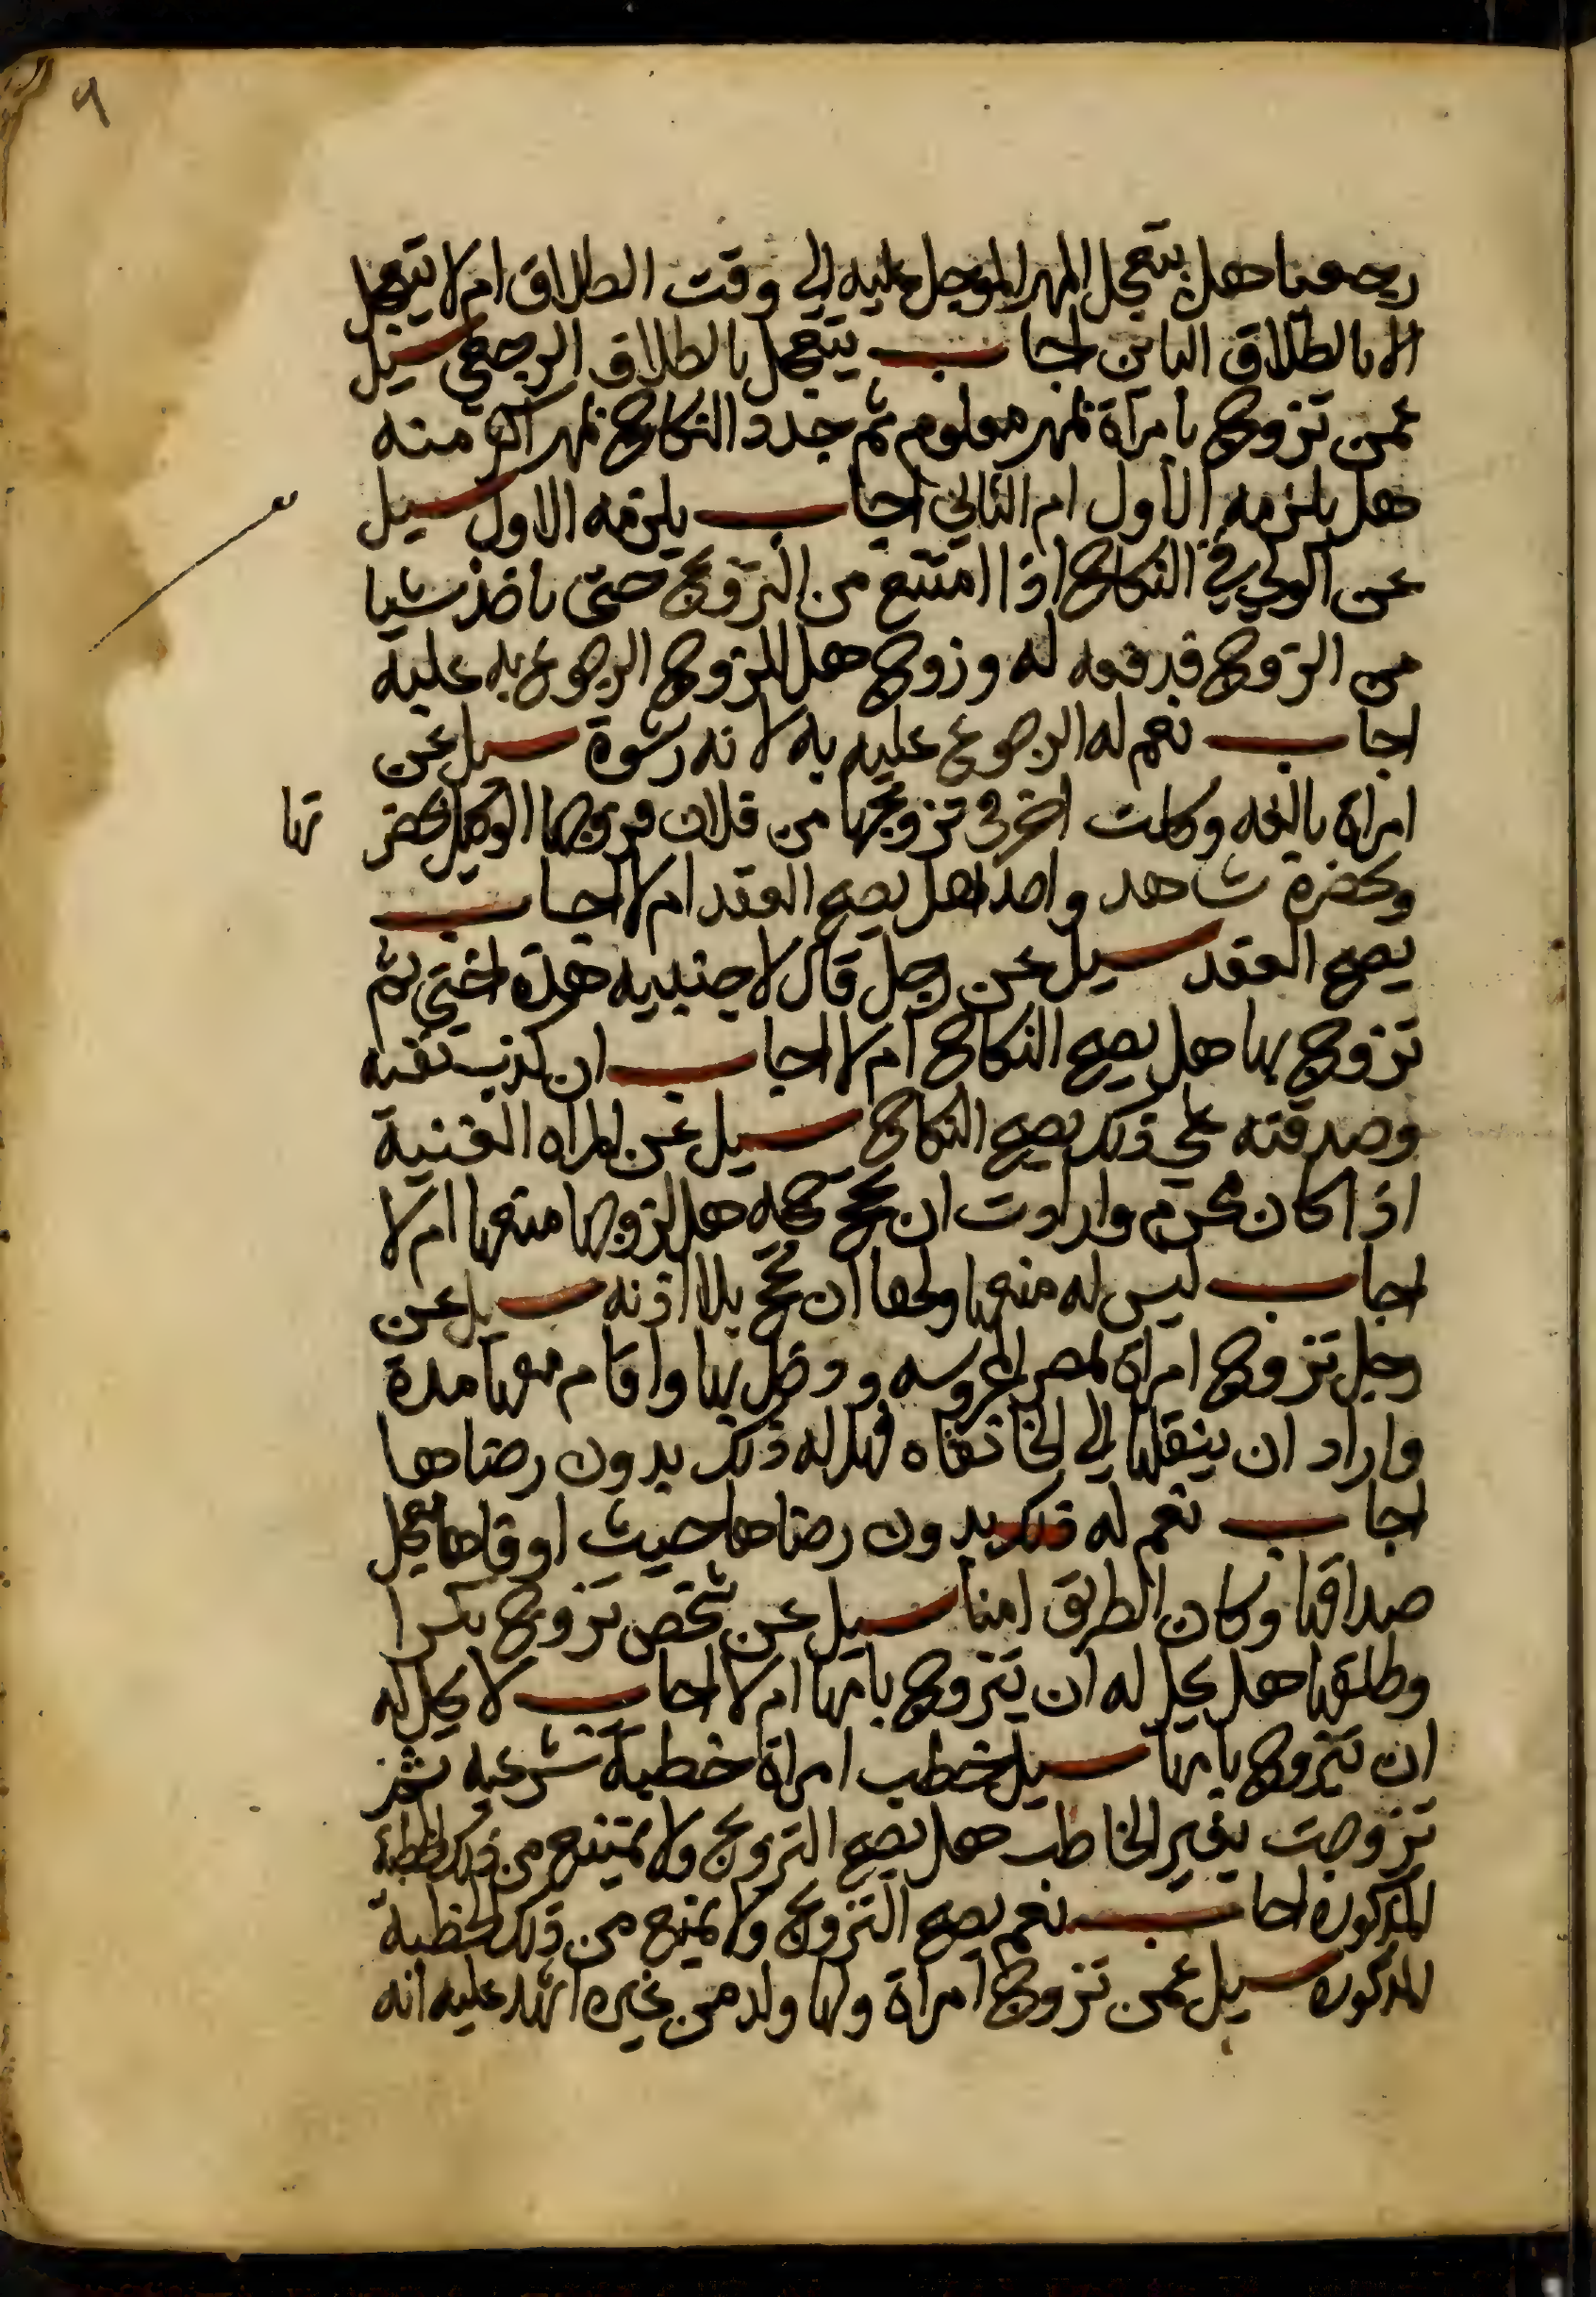 ٩
رجعيا هل يتعجل المهر الموجل عليه الي وقت الطلاق ام لا يتعجل
الا بالطلاق الباين اجاب يتعجل بالطلاق الرجعي سيل
عمن تزوج بامراة بمهر معلوم ثم جدد النكاح بمهر اكثر منه
هل يلزمه الاول ام الثاني اجاب يلزمه الاول سيل
عن الولي في النكاح اذا امتنع من التزويج حتى ياخذ شيا
من الزوج فدفعه له وزوج هل للزوج الرجوع به عليه
اجاب نعم له الرجوع عليه به لانه رشوة سيل عن
امراة بالغه وكلت اخر في تزويجها من فلان فزوجها الوكيل بحضر
تها
وبحضرة شاهد واحد هل يصح العقد ام لا اجاب
يصح العقد سيل عن رجل قال لاجنبيه هذه اختي ثم
تزوج بها هل يصح النكاح ام لا اجاب ان كذب نفسه
وصدقته علي ذلك يصح النكاح سيل عن المراه الغنية
اذا كان محرم وارادت ان تحج حجه هل لزوجها منعها ام لا
اجاب ليس له منعها ولها ان تحج بلا اذنه سيل عن
رجل تزوج امراة بمصر المحروسه ودخل بها واقام معها مدة
واراد ان ينقلها الي الخانقاه فهل له ذلك بدون رضاها
اجاب نعم له ذلك بدون رضاها حيث اوفاها معجل
صداقها وكان الطريق امنا سيل عن شخص تزوج بكرا
وطلقها هل يحل له ان يتزوج بامها ام لا اجاب لا يحل له
ان يتزوج بامها سيل خطب امراة خطبة شرعيه ثم
تزوجت بغير الخاطب هل يصح التزويج ولا يمتنع من ذلك لخطبة
المذكوره اجاب نعم يصح التزويج ولا يمنع من ذلك الخطبة
المذكوره سيل عمن تزوج امراة ولها ولد من غيره اشهد عليه انه